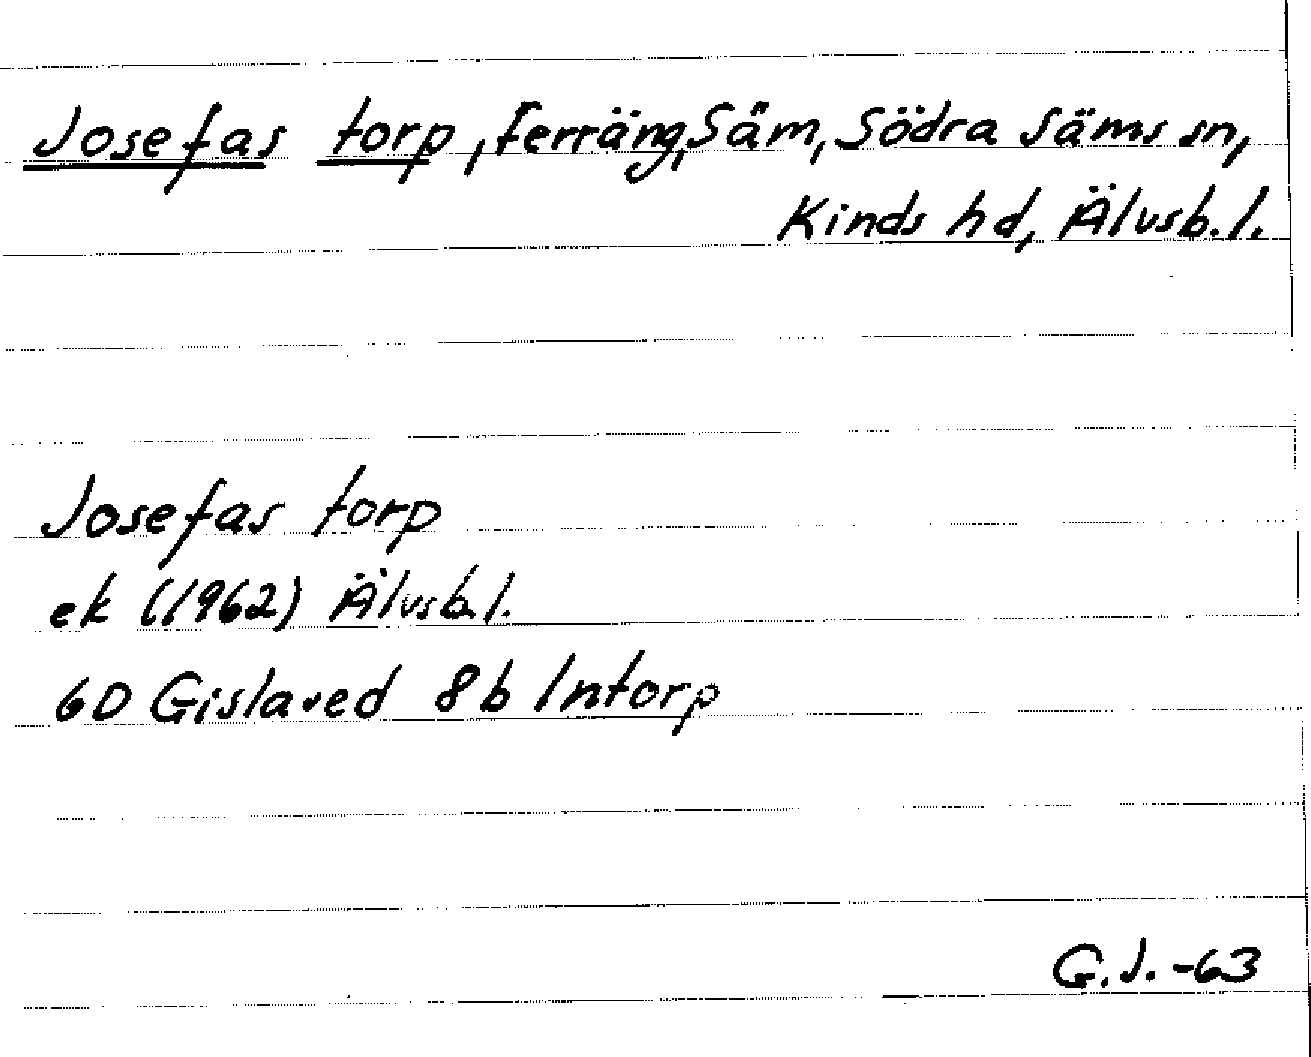 Josefas torp, terräng, Säm, Södra Säms sn,
Kinds hd, Älvsb.l.
Josefas torp
ek (1962) Älvsb.l.
6D Gislaved 8b Intorp
G.J. -63